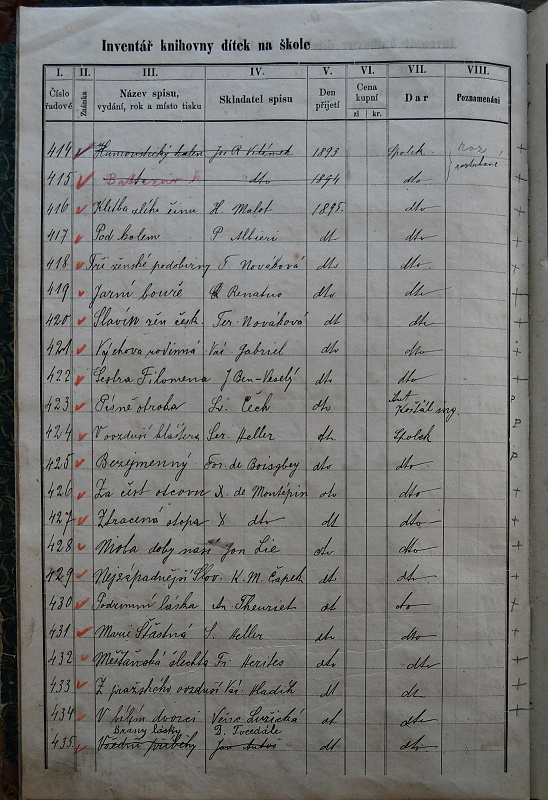 Inventář knihovny dítek na škole
I. II. III. IV. V. VI. VII. VIII.
Číslo řadové Známka Název spisu, vydání, rok a místo tisku Skladatel spisu Den přijetí Cena kupní zl. kr. Dar Poznamenání
414 Humoristický kalen Jos R Vilímek 1893 Spolek
415 dto 1894 dto
416 Kletba zlého činu H. Malot 1895. dto
417 Pod kolem P Albieri dt dto
418 Tři ženské podobizny T. Nováková dto dto
419 Jarní bouře Renatus dto dto
420 Slavín žen česk. Ter. Nováková dt dto
421 Výchova rodinná Vác Gabriel dt dto
422 Sestra Filomena J Ben-Veselý dt dto
423 Písně otroka Sv. Čech dto Ant Košťál ing.
424 V ovzduší kláštera Ser. Heller dt Spolek
425 Bezejmenný For. de Boisgobey dto dto
426 Za čest otcovu X. de Montépin dto dto
427 Ztracená stopa X dto dt dto
428 doby naší Jon Lie dto dto
429 Nejzápadnější Slov. K. M. Čapek dt dto
430 Podzimní láska An. Theuriet dt dto
431 Marie Šťastná S. Heller dt dto
432 Měšťanská šlechta Fr. Herites dto dto
433 Z pražského ovzduší Vác. Hladík dt dt
434 V bílém dvorci Věnc. Lužická dt dto
Brány lásky D. Tvcedále
435. Všední příběhy Jan Antoš dt dto